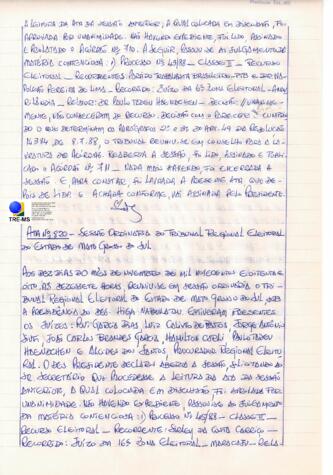 À LEITURA DA ATA DA SESSÃO ANTERIOR, A QUAL COLOCADA EM DISCUSSÃO, FOI
APROVADA POR UNANIMIDADE. NÃO HOUVE EXPEDIENTE, FOI LIDO, ASSINADO
E PUBLICADO O ACÓRDÃO Nº 710. A SEGUIR, PASSOU-SE AO JULGAMENTO DE
MATÉRIA CONTENCIOSA: 1) PROCESSO Nº 43/88 - CLASSE II - RECURSO
ELEITORAL - RECORRENTES: PARTIDO TRABALHISTA BRASILEIRO-PTB
DE LIMA - RECORRIDO: JUÍZO DA ZONA ELEITORAL -
RELATOR: DR. PALLITZDEU HOEMECHEN - DECISÃO: UNANIME-
MENTE, NÃO CONHECERAM DO RECURSO. DECISÃO COM O PARECER. CUMPRIN-
DO O QUE DETERMINAM OS PARÁGRAFOS 2º E 3º DO ART. 49 DA RESOLUÇÃO
DE 8.7.88, O TRIBUNAL REUNIU-SE EM CONSELHO PARA A
DE ACÓRDÃO. REABERTA A SESSÃO, FOI LIDO, ASSINADO E PUBLI-
CADO O ACÓRDÃO Nº 711. NADA MAIS HAVENDO, FOI ENCERRADA A
SESSÃO. E PARA CONSTAR, FOI LAVRADA A PRESENTE ATA QUE DE-
POIS DE LIDA E ACHADA CONFORME, VAI ASSINADA PELO PRESIDENTE.
TRE-MS
ATA Nº 820 - SESSÃO ORDINÁRIA DO TRIBUNAL REGIONAL ELEITORAL
DO ESTADO DE MATO GROSSO DO SUL
AOS DEZ DIAS DO MÊS DE NOVEMBRO DE MIL NOVECENTOS E OITENTA E
OITO, ÀS DEZESSETE HORAS, REUNIU-SE EM SESSÃO ORDINÁRIA O TRI-
BUNAL REGIONAL ELEITORAL DO ESTADO DE MATO GROSSO DO SUL, SOB
A PRESIDÊNCIA DO DES. HIGA NABUKATSU. ESTIVERAM PRESENTES
OS JUÍZES: RUI GARCIA DIAS, LUIZ CARLOS DE, JORGE ANTÔNIO
JOÃO CARLOS BRANDES GARCIA, HAMILTON CARLI, PALLITZDEU
HOEMECHEN E ALCIDES DOS SANTOS, PROCURADOR REGIONAL ELEITO-
RAL. O DES. PRESIDENTE DECLAROU ABERTA A SESSÃO, SOLICITANDO AO
SR. SECRETÁRIO QUE PROCEDESSE À LEITURA DA ATA DA SESSÃO
ANTERIOR, A QUAL COLOCADA EM DISCUSSÃO FOI APROVADA POR
UNANIMIDADE. NÃO HAVENDO EXPEDIENTE, PASSOU-SE AO JULGAMENTO
EM MATÉRIA CONTENCIOSA: 1) PROCESSO Nº 40/88 - CLASSE II -
RECURSO ELEITORAL - RECORRENTE: DA COSTA GARCIA -
RECORRIDO: JUÍZO DA 16ª ZONA ELEITORAL - MARACAJU - RELA-